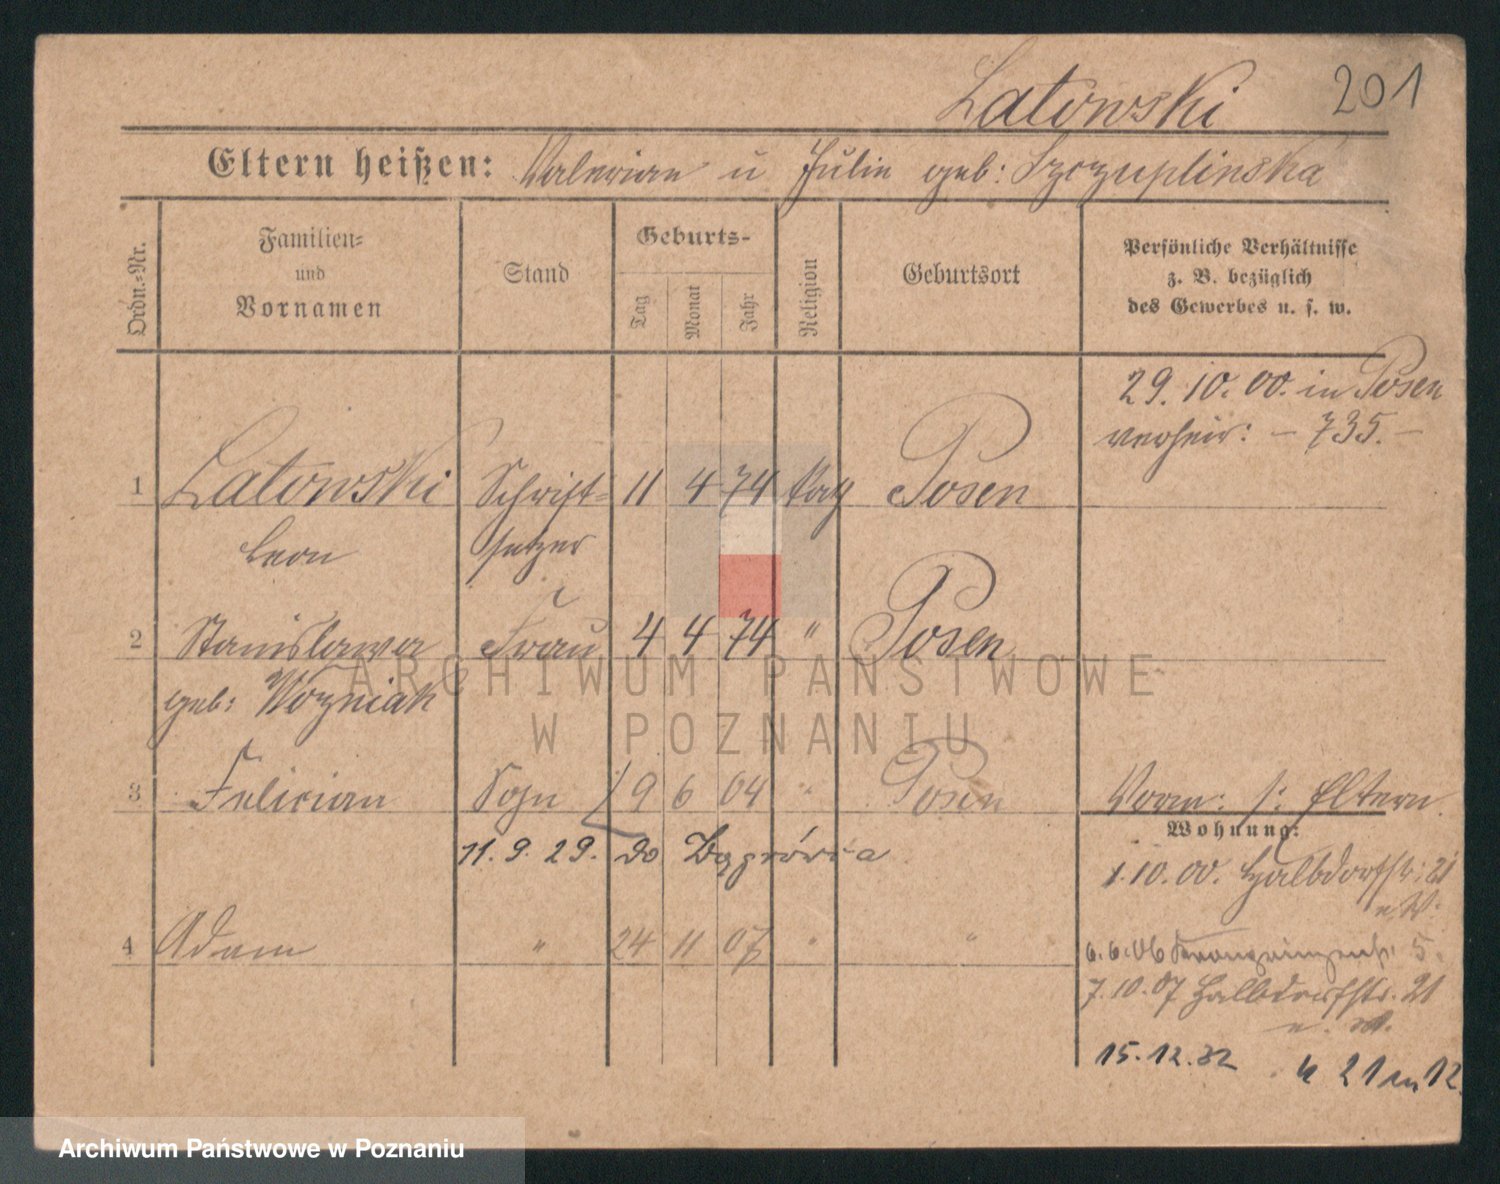 Latowski 201
Eltern heißen: Valerian u Julie geb: Szczuplinska
Ordn.-Nr.
Familien-
und
Vornamen
Stand
Geburts-
Tag
Monat
Jahr
Religion
Geburtsort
Persönliche Verhältnisse
z. B. bezüglich
des Gewerbes u. s. w.
29. 10. 00. in Posen
verheir: – 735. –
1 Latowski Schrift= 11 4 74 kath Posen
Leon setzer
2 Stanislawa Frau 4 4 74 " Posen
geb: Wozniak
3 Felician Sohn 9 6 04 " Posen
Wohnung:
Vorm: s: Eltern.
11. 9. 29. do
1.10.00. Halbdorfstr: 21
4 Adam " 24 11 07 " "
6.6.06 5.
7.10.07 Halbdorfstr. 21
15.12.32 21 m 12.
ARCHIWUM PAŃSTWOWE
W POZNANIU
Archiwum Państwowe w Poznaniu